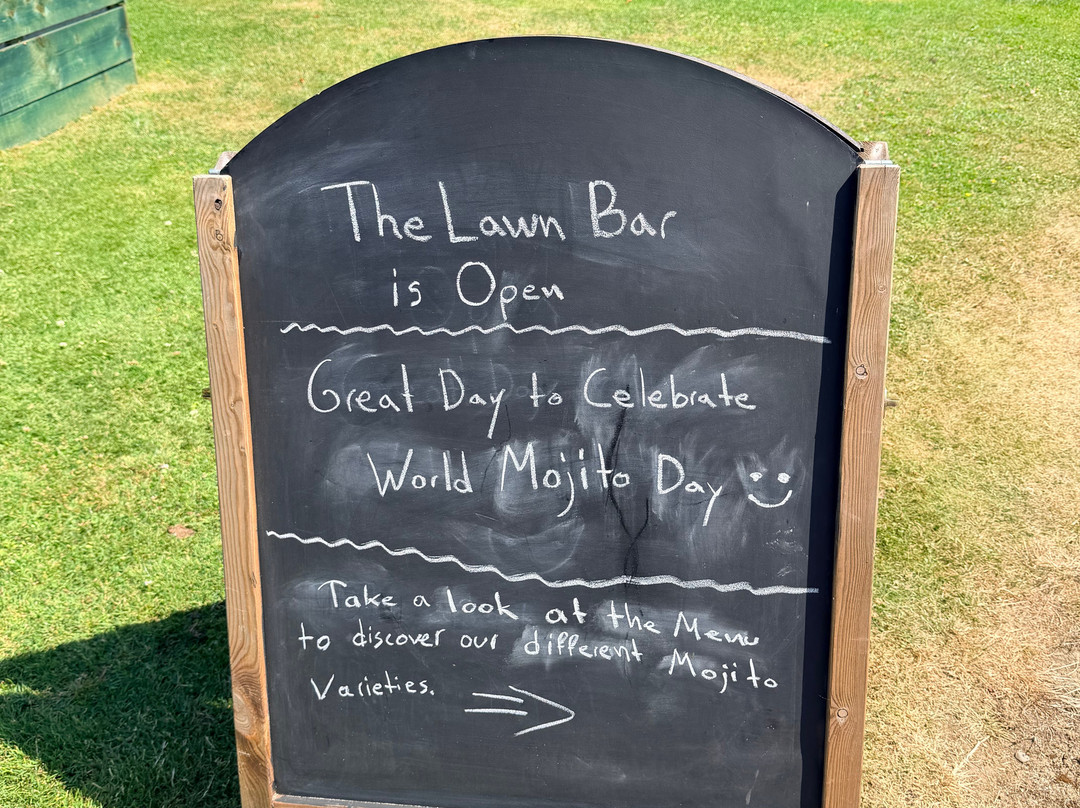 The Lawn Bar
is Open
Great Day to Celebrate
World Mojito Day
Take a look at the Menu
to discover our different Mojito
Varieties.